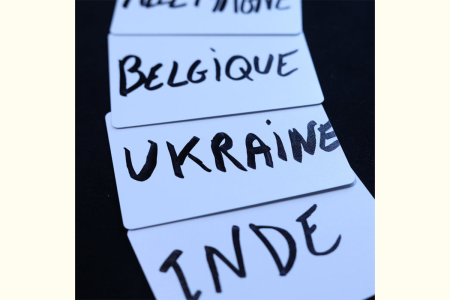 BELGIQUE
UKRAINE
INDE